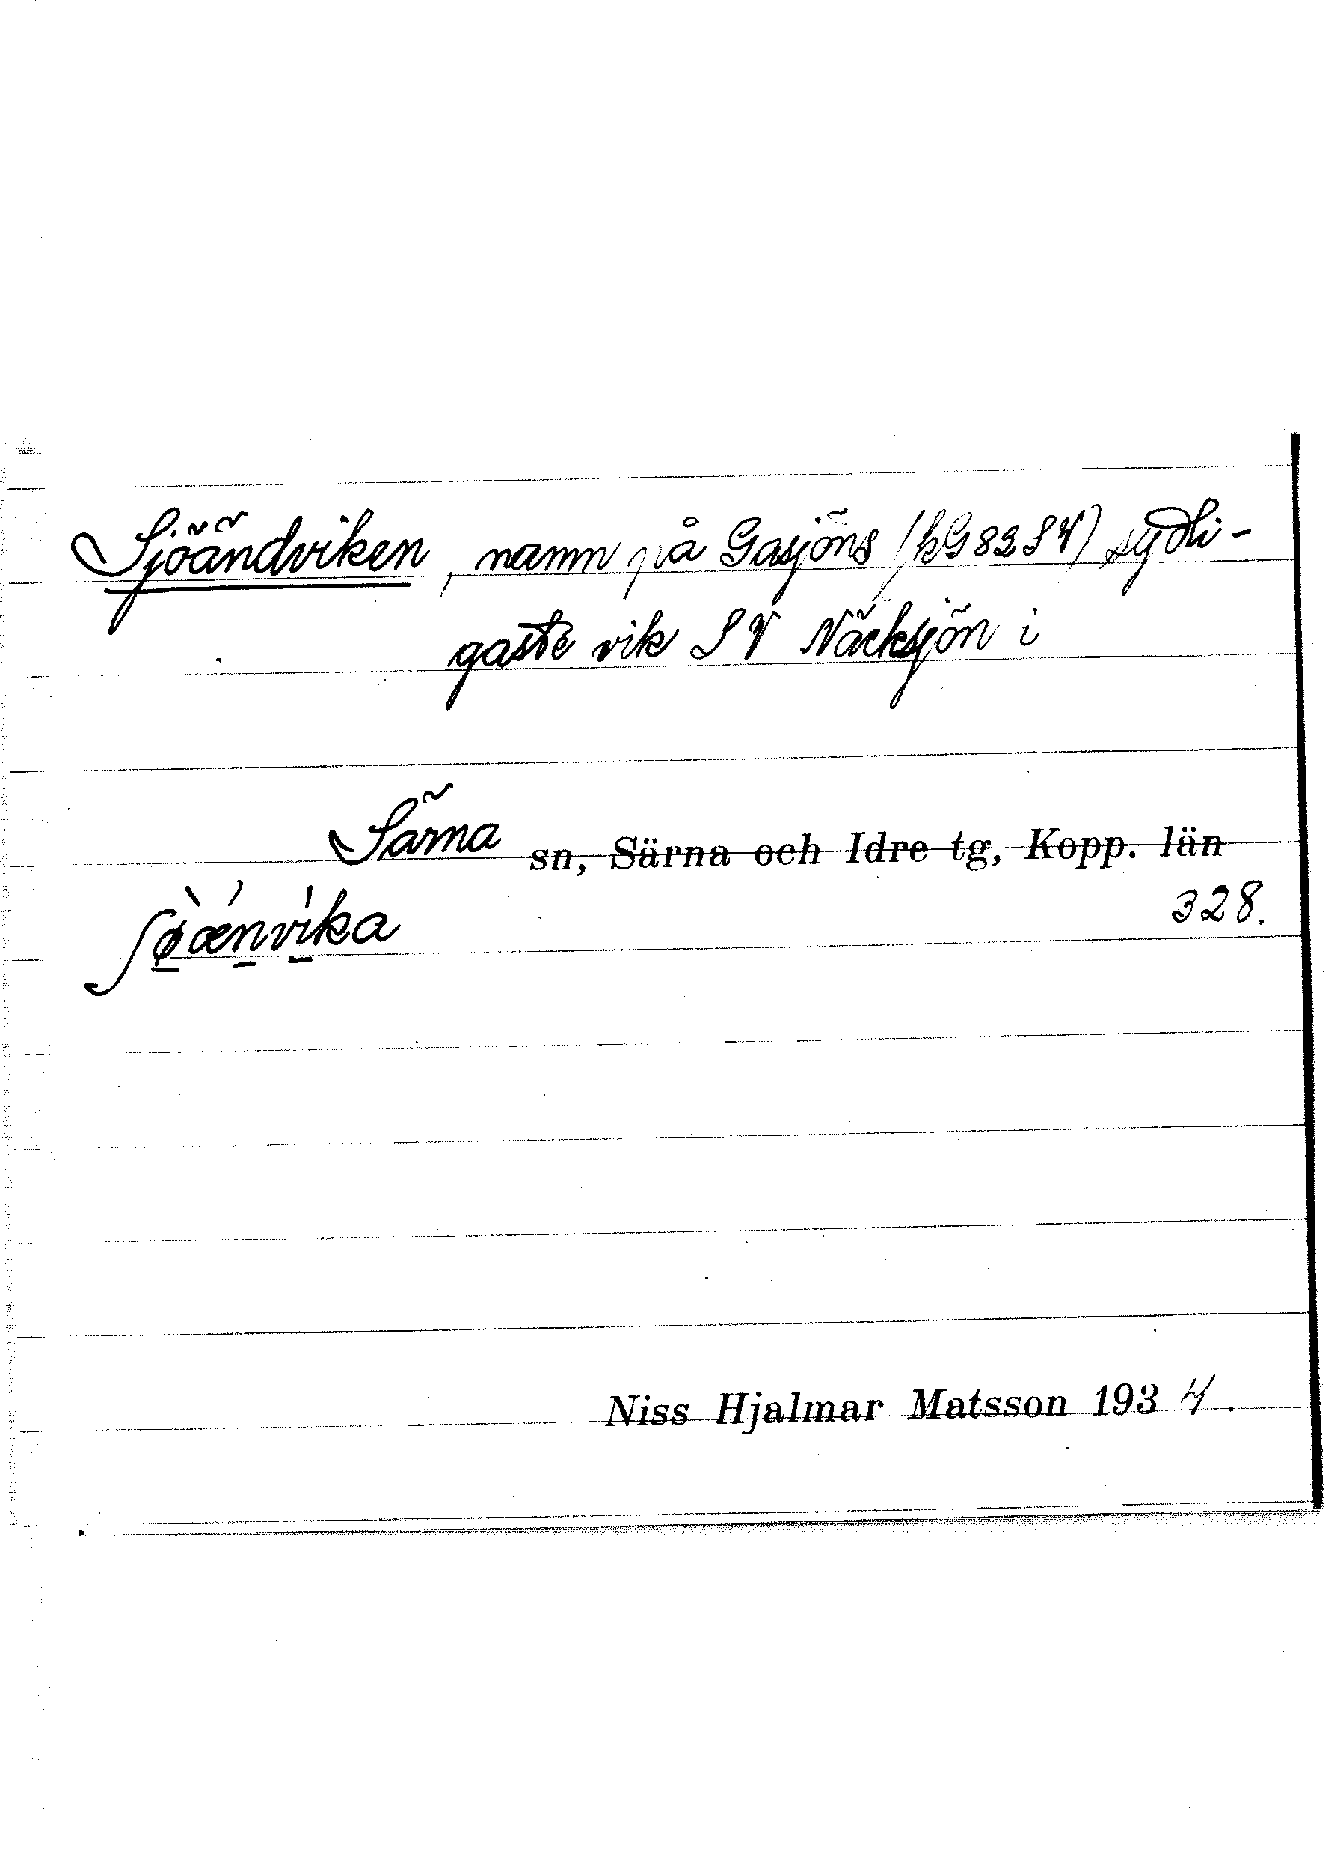 Sjöändviken, namn på Gasjöns (kG83SV) sydli-
gaste vik SV Näcksjön i
Särna sn, Särna och Idre tg, Kopp. län
ʃø̀ǽnvíka 328.
Niss Hjalmar Matsson 1934.